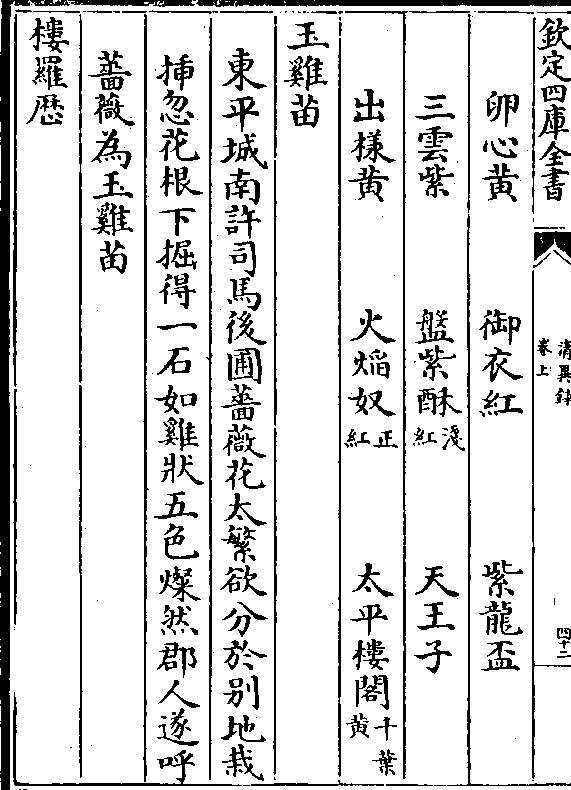 欽定四庫全書
清異錄
卷上
四十二
卵心黃 御衣紅 紫龍盃
三雲紫 盤紫酥淺紅 天王子
出樣黃 火焰奴正紅 太平樓閣千葉黃
玉雞苗
東平城南許司馬後圃薔薇花太繁欲分於别地栽
揷忽花根下掘得一石如雞狀五色燦然郡人遂呼
薔薇為玉雞苗
樓羅厯